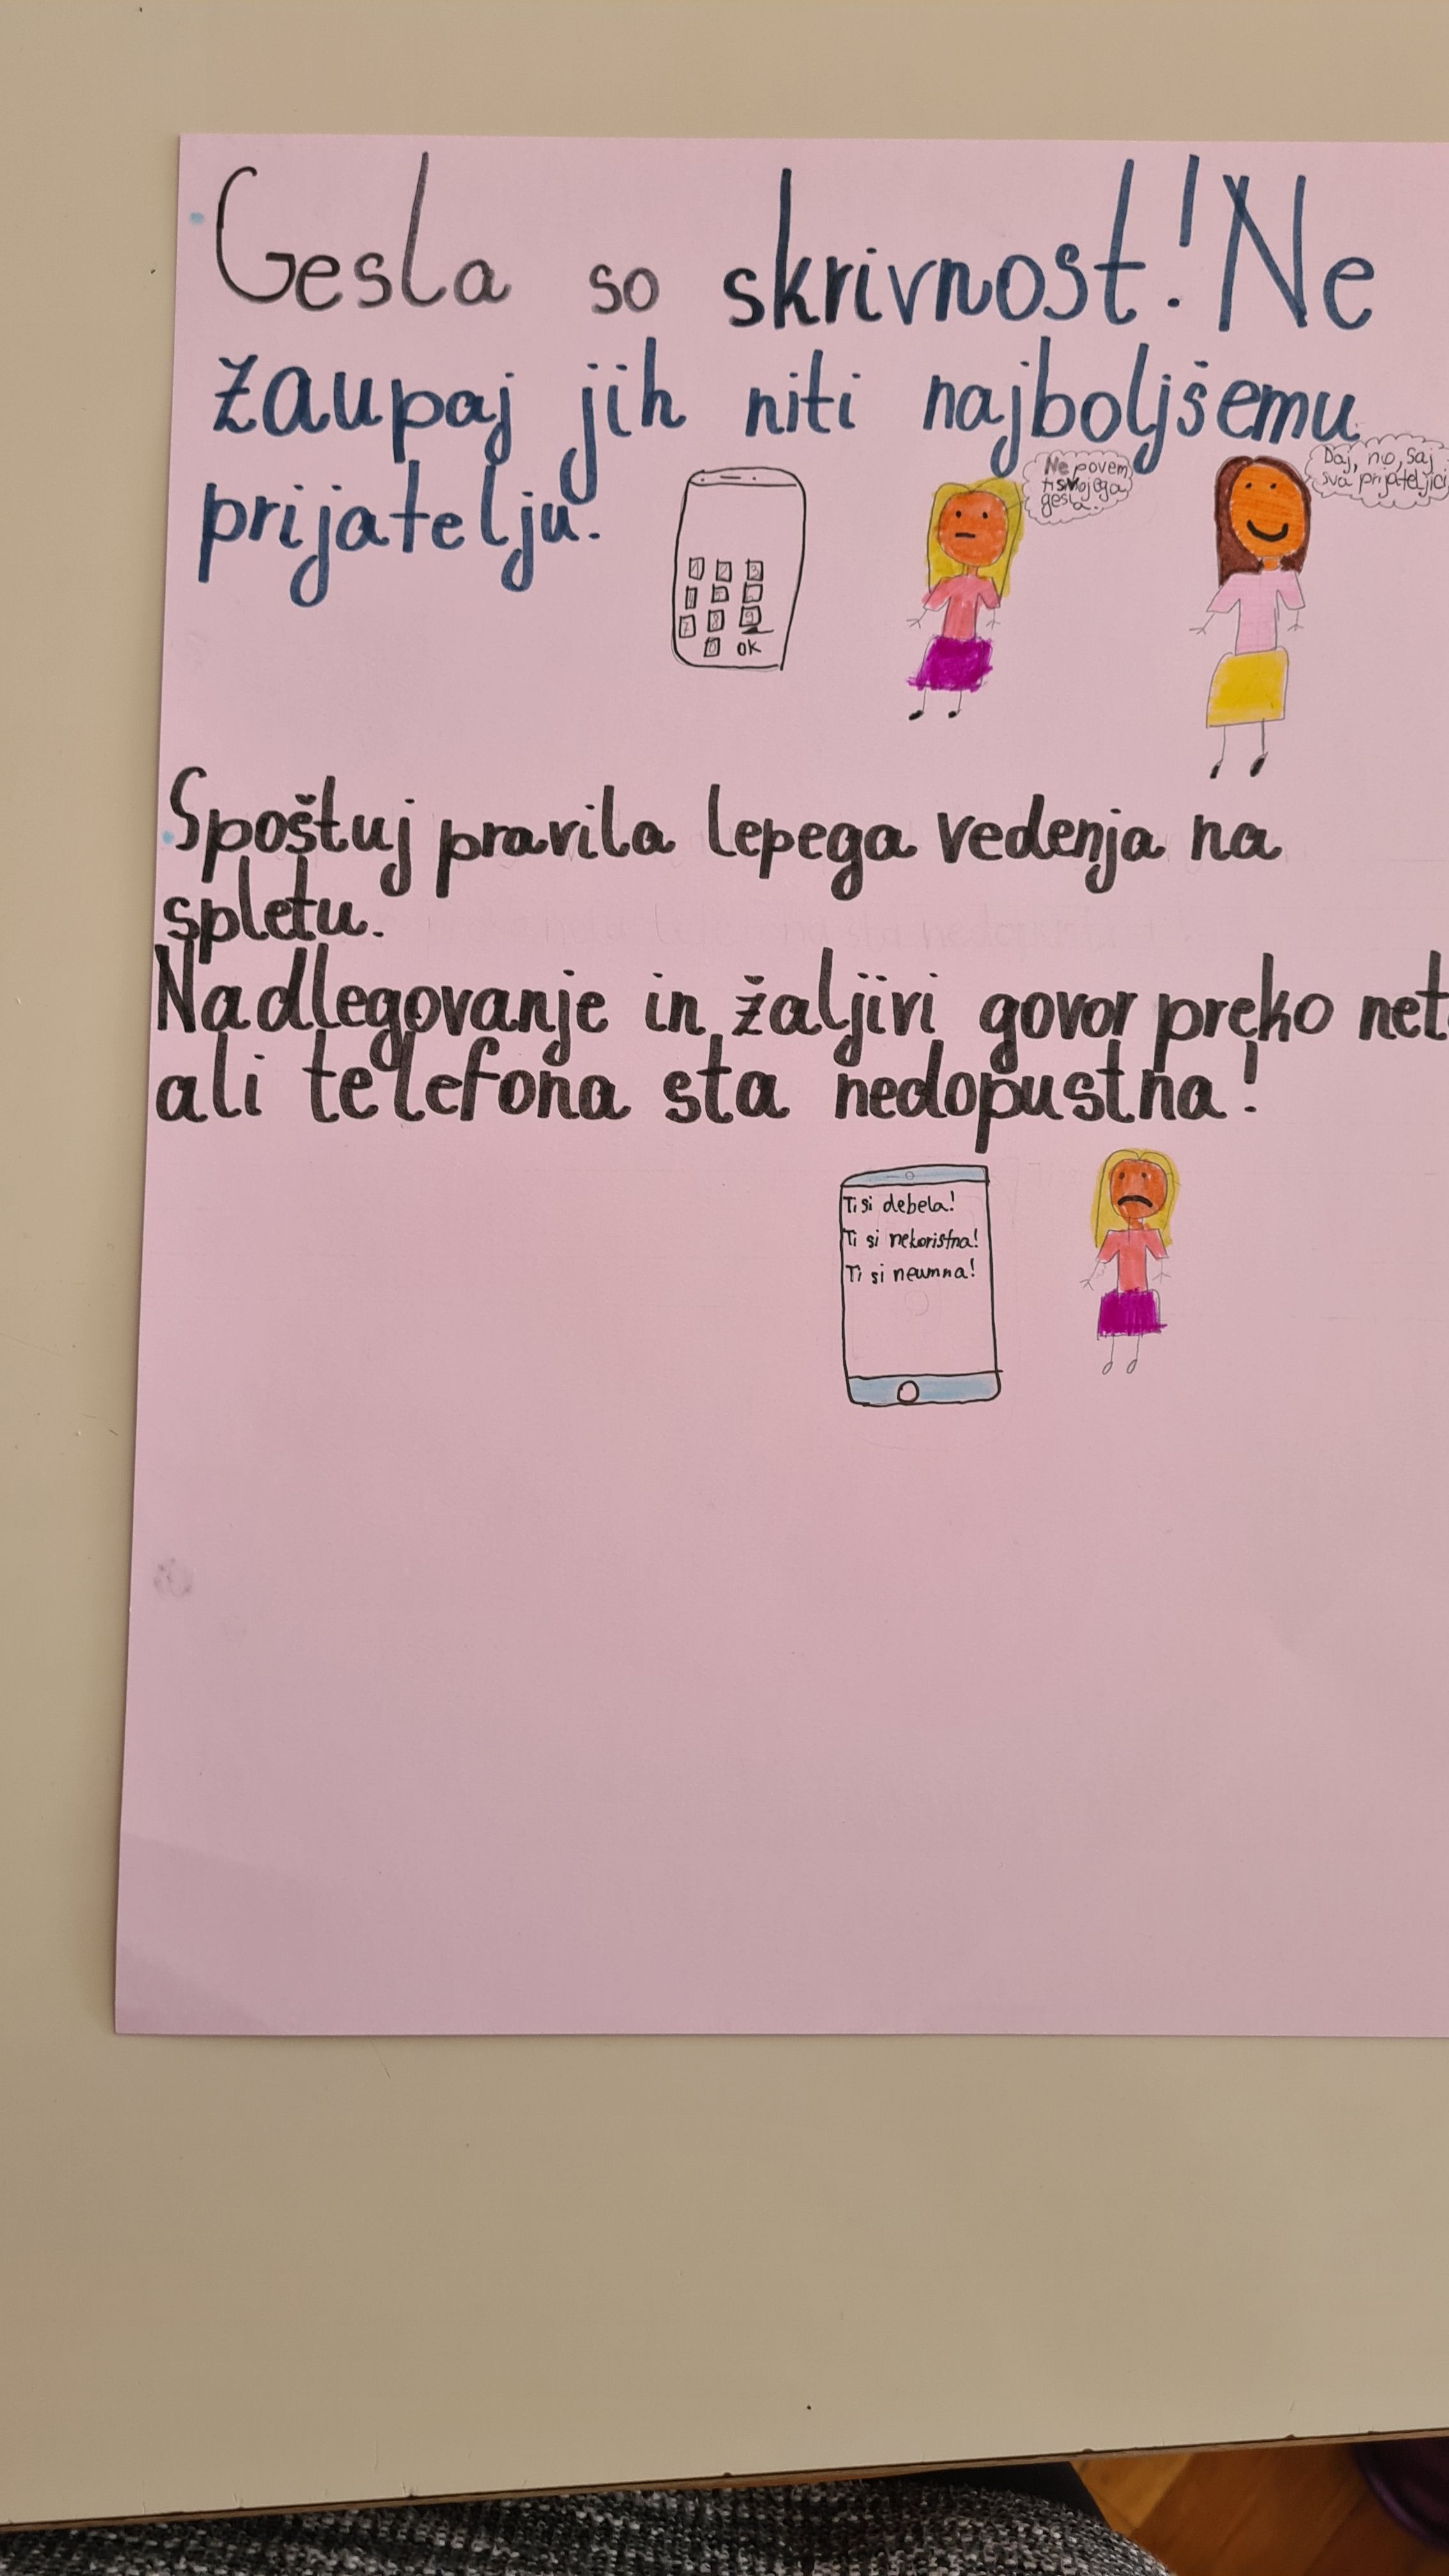 Gesla so skrivnost! Ne
zaupaj jih niti najboljšemu
prijatelju.
Ne povem
ti svojega
gesla.
Daj, no, saj
sva prijateljici
1 2 3
7 8 9
0 OK
Spoštuj pravila lepega vedenja na
spletu.
Nadlegovanje in žaljivi govor preko
ali telefona sta nedopustna!
Ti si debela!
Ti si nekoristna!
Ti si neumna!